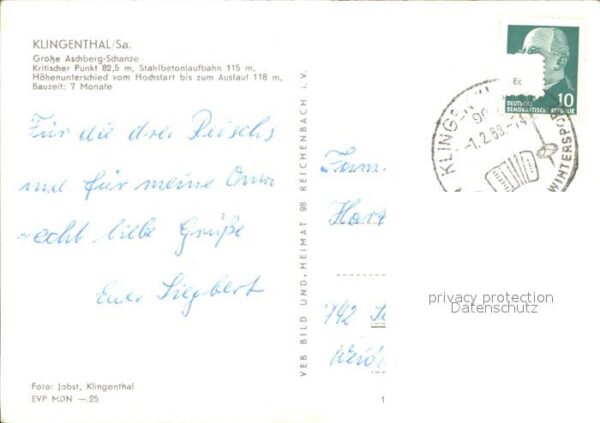 KLINGENTHAL/Sa.
Große Aschberg-Schanze
Kritischer Punkt 82,5 m, Stahlbetonlaufbahn 115 m,
Höhenunterschied vom Hochstart bis zum Auslauf 118 m,
Bauzeit: 7 Monate
Für die drei Reischs
und für meine Oma
recht liebe Grüße
Euer Siegbert
Foto: Jobst, Klingenthal
EVP MDN —.25
VEB BILD UND HEIMAT 98 REICHENBACH I. V.
DEUTSCHE
DEMOKRATISCHE REPUBLIK
10
KLINGEN
-1.2.68-
WINTERSPOR
Fam.
742
privacy protection
Datenschutz
1